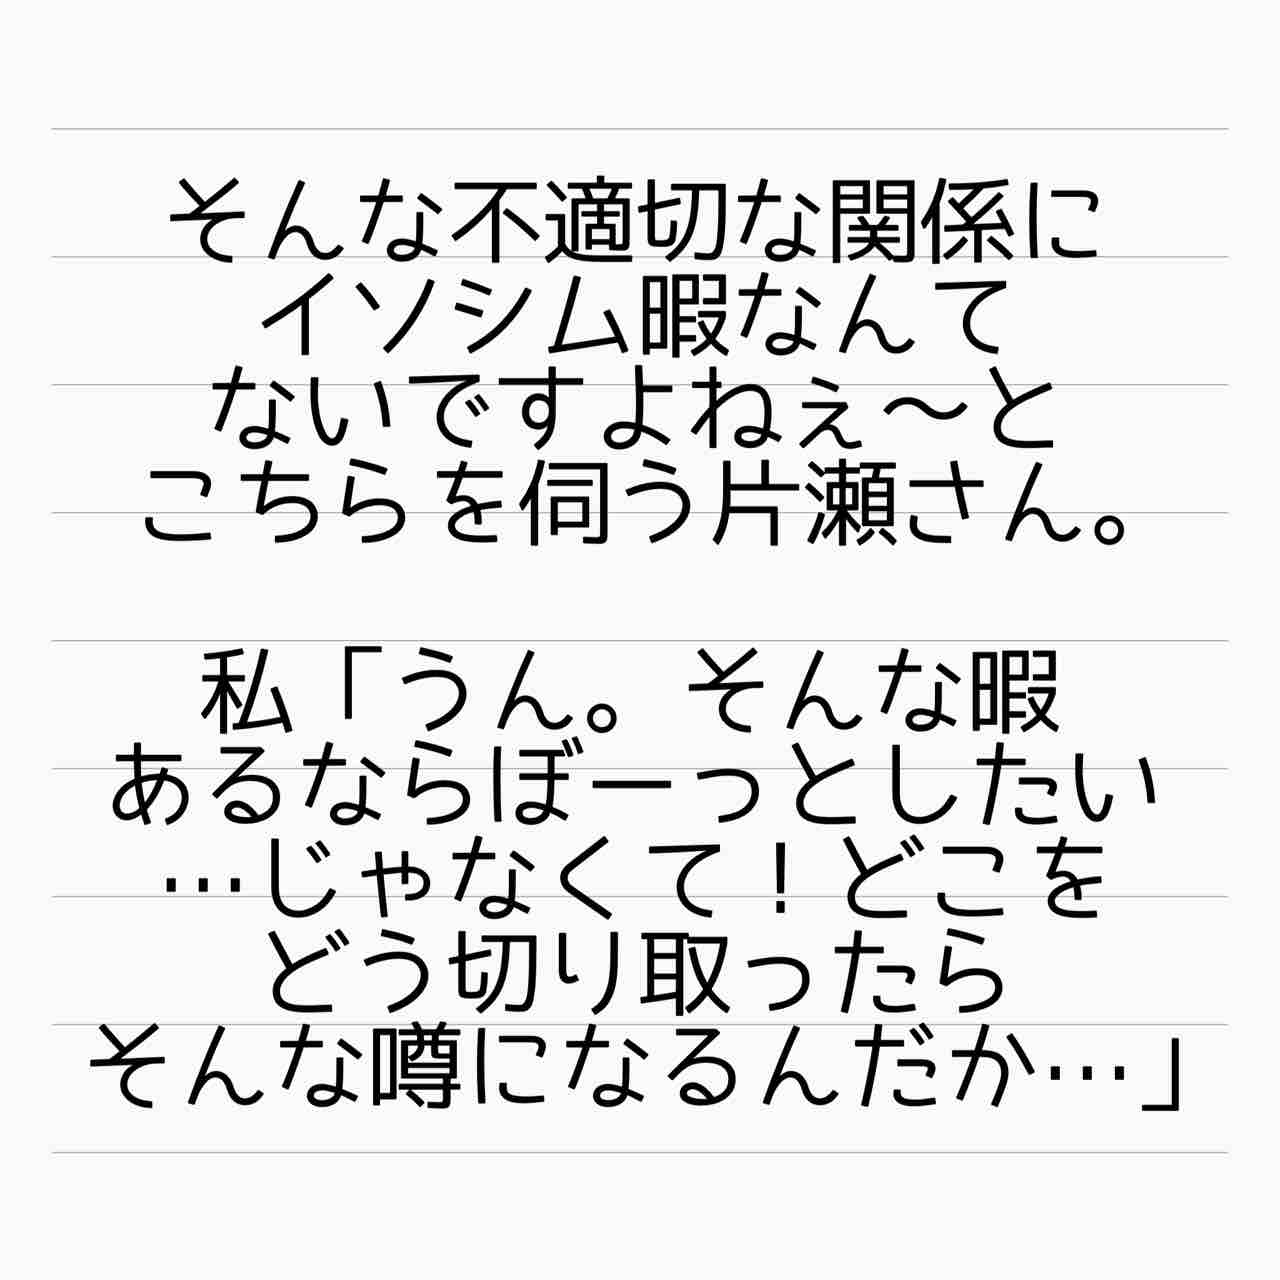 そんな不適切な関係に
イソシム暇なんて
ないですよねぇ〜と
こちらを伺う片瀬さん。
私「うん。そんな暇
あるならぼーっとしたい
…じゃなくて！どこを
どう切り取ったら
そんな噂になるんだか…」